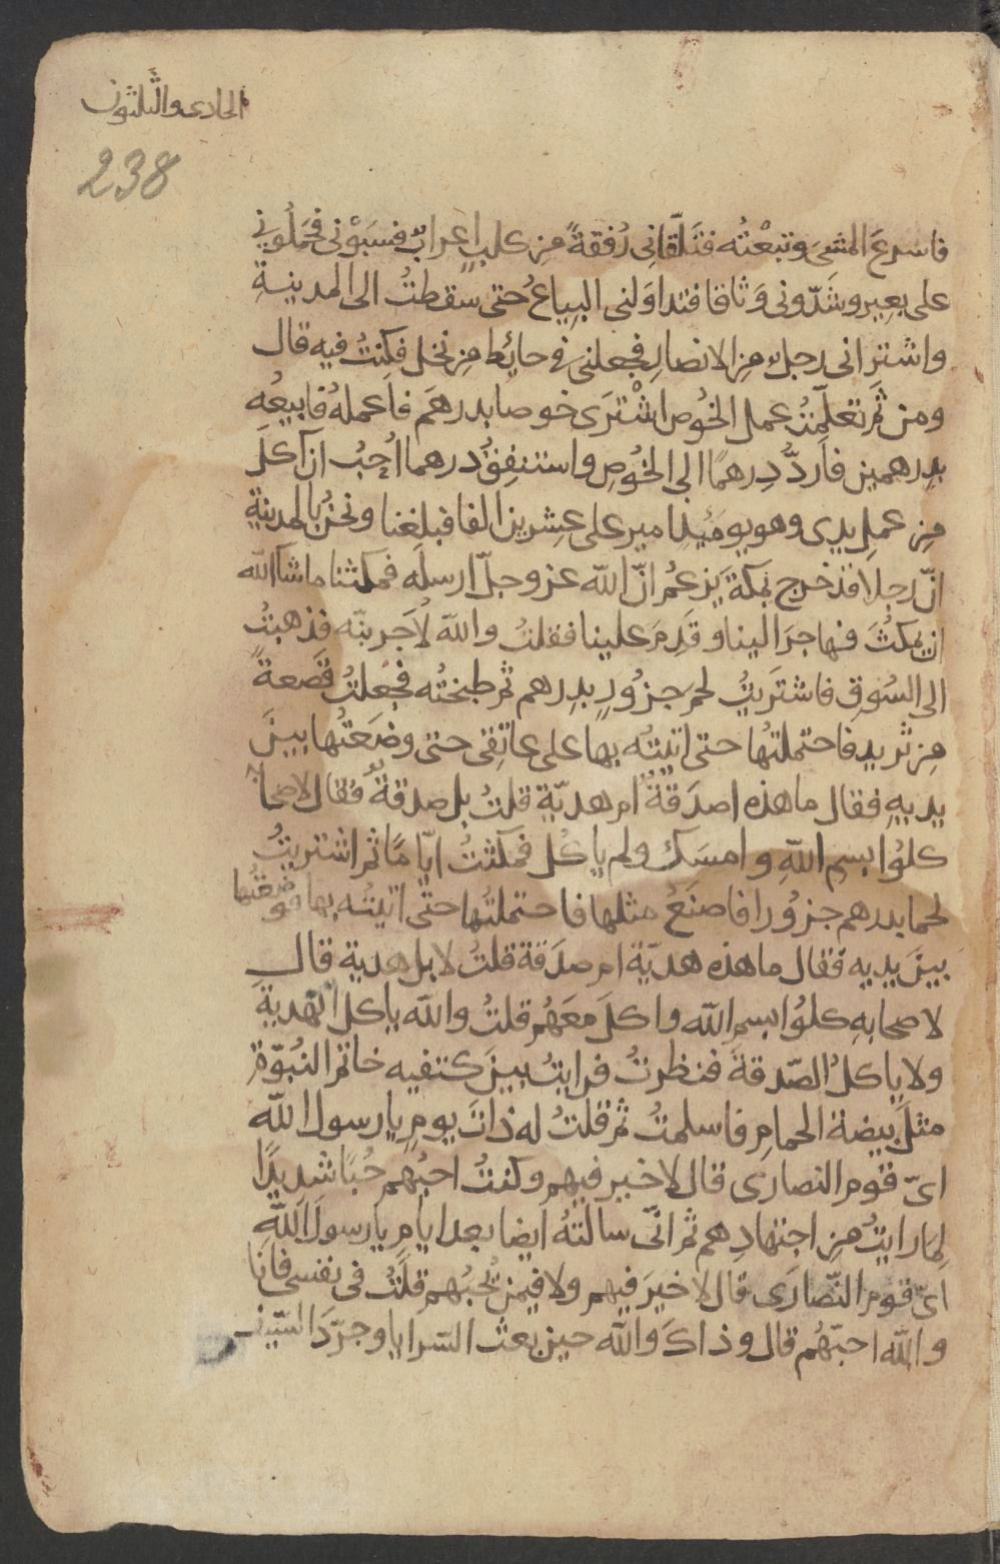 الحادى والثلثون
238
فاسرعَ المشىَ وتبعْتُه فتَلقّانِى رُفقةً مِن كلبٍ اعرابٌ فسَبَوْنى فحَمَلُونِي
على بعِيرٍ وشَدّونى وَثاقا فتداوَلنى البِياعُ حتى سقطتُ الى المدينةِ
واشترانى رجلٌ مِن الانصارِ فجعلنى فى حايُطٍ مِن نخلٍ فكنتُ فيه قال
ومن ثَم تعلّمتُ عملَ الخُوصِ اشْترَى خوصا بدرهَم فاَعملهُ فابيعُه
بدِرهمين فاَردُّ دِرهمًا الى الخُوصِ واستنفِقُ درهما اُحِبُ ان آكلَ
مِن عملِ يدى وهو يومَيٕذٍ امير على عِشرين الفا فبلغنا ونحنُ بالمدينةِ
انّ رجلا قد خرج بمكةَ يَزعمُ انّ اللّه عز وجلّ ارسلَه فمكثنا ما شآ اللّه
ان يمكثَ فهاجرَ الينا وقَدِمَ علينا فقلتُ واللّه لاُجرّبنّه فذهبتُ
الى السُوقِ فاشترَيتُ لحمَ جزُورٍ بدِرهم ثم طبختُه فجعلتُ قَصعةً
مِن ثريد فاحتملتُها حتى اتيتُه بها على عاتِقى حتى وضَعتُها بينَ
يديهِ فقال ما هذه اصدَقةٌ ام هديّة قلتُ بل صدقةٌ فقال لاصحابه
كلوُا بسم اللّهِ وامسَك ولم ياكُل فمكثتُ ايّامًا ثم اشتريتُ
لحما بدرهم جزُورا فاصنَعُ مثلها فاحتملتُها حتّى اتيتُه بها فوضعتُها
بينَ يديه فقال ما هذه هديّة ام صدَقة قلتُ لا بل هدية قال
لاصحابهِ كلوُا بسم اللّه واكلَ معَهُم قلتُ واللّه ياكل الهديةَ
ولا ياكلُ الصّدقةَ فنظرتُ فرايتُ بينَ كتفيه خاتم النبُوّةِ
مثلَ بيضة الحمامِ فاسلمتُ ثم قلتُ له ذاتَ يومٍ يا رسول اللّه
اىّ قوم النصارى قال لا خير فيهِم وكنتُ احبُهم حُبًا شديدًا
لِما رايتُ مِن اجتهادِهم ثم انّى سالتُهُ ايضا بعد ايامٍ يا رسولَ اللّهِ
اىّ قوم النّصارَى قال لا خيرَ فيهم ولا فيمَن يُحبّهم قلتُ فى نفسى فانا
واللّه احبّهُم قال وذاكَ واللّه حين بعثَ السّرايا وجرّدَ السّيف